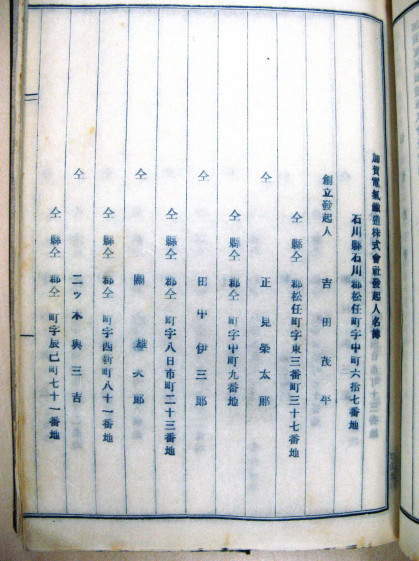 加賀電氣鐵道株式會社發起人名簿
石川縣石川郡松任町字中町六拾七番地
創立發起人 吉田茂平
仝縣仝郡松任町字東三番町三十七番地
仝 正見榮太郎
仝縣仝郡仝町字中町九番地
仝 田中伊三郎
仝縣仝郡仝町字八日市町二十三番地
仝 關雄次郎
仝縣仝郡仝町字西新町八十一番地
仝 二ッ木與三吉
仝縣仝郡仝町字辰巳町七十一番地